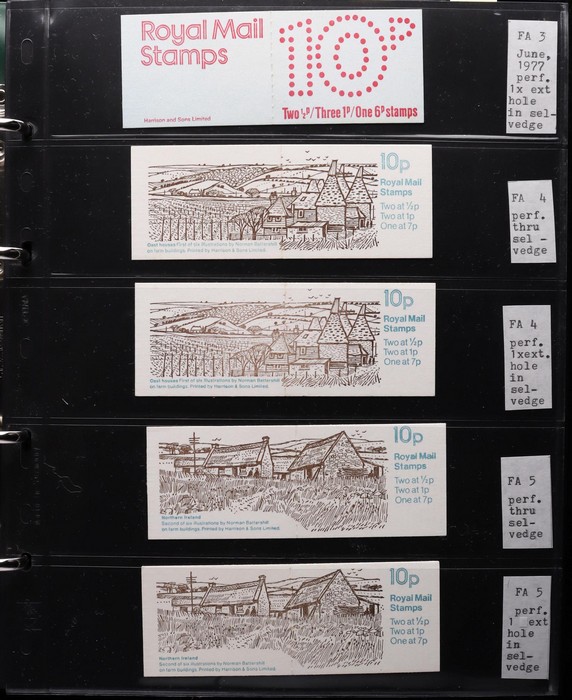 Royal Mail
Stamps
10P
Harrison and Sons Limited
Two ½P/Three 1P/One 6P stamps
FA 3
June,
1977
perf.
1x ext
hole
in sel-
vedge
10p
Royal Mail
Stamps
Two at ½p
Two at 1p
One at 7p
Oast houses First of six illustrations by Norman Battershill
on farm buildings. Printed by Harrison & Sons Limited.
FA 4
perf.
thru
sel -
vedge
10p
Royal Mail
Stamps
Two at ½p
Two at 1p
One at 7p
Oast houses First of six illustrations by Norman Battershill
on farm buildings. Printed by Harrison & Sons Limited.
FA 4
perf.
1xext.
hole
in
sel-
vedge
10p
Royal Mail
Stamps
Two at ½p
Two at 1p
One at 7p
Northern Ireland
Second of six illustrations by Norman Battershill
on farm buildings. Printed by Harrison & Sons Limited.
FA 5
perf.
thru
sel-
vedge
10p
Royal Mail
Stamps
Two at ½p
Two at 1p
One at 7p
Northern Ireland
Second of six illustrations by Norman Battershill
on farm buildings. Printed by Harrison & Sons Limited.
FA 5
perf.
1 ext
hole
in
sel-
vedge